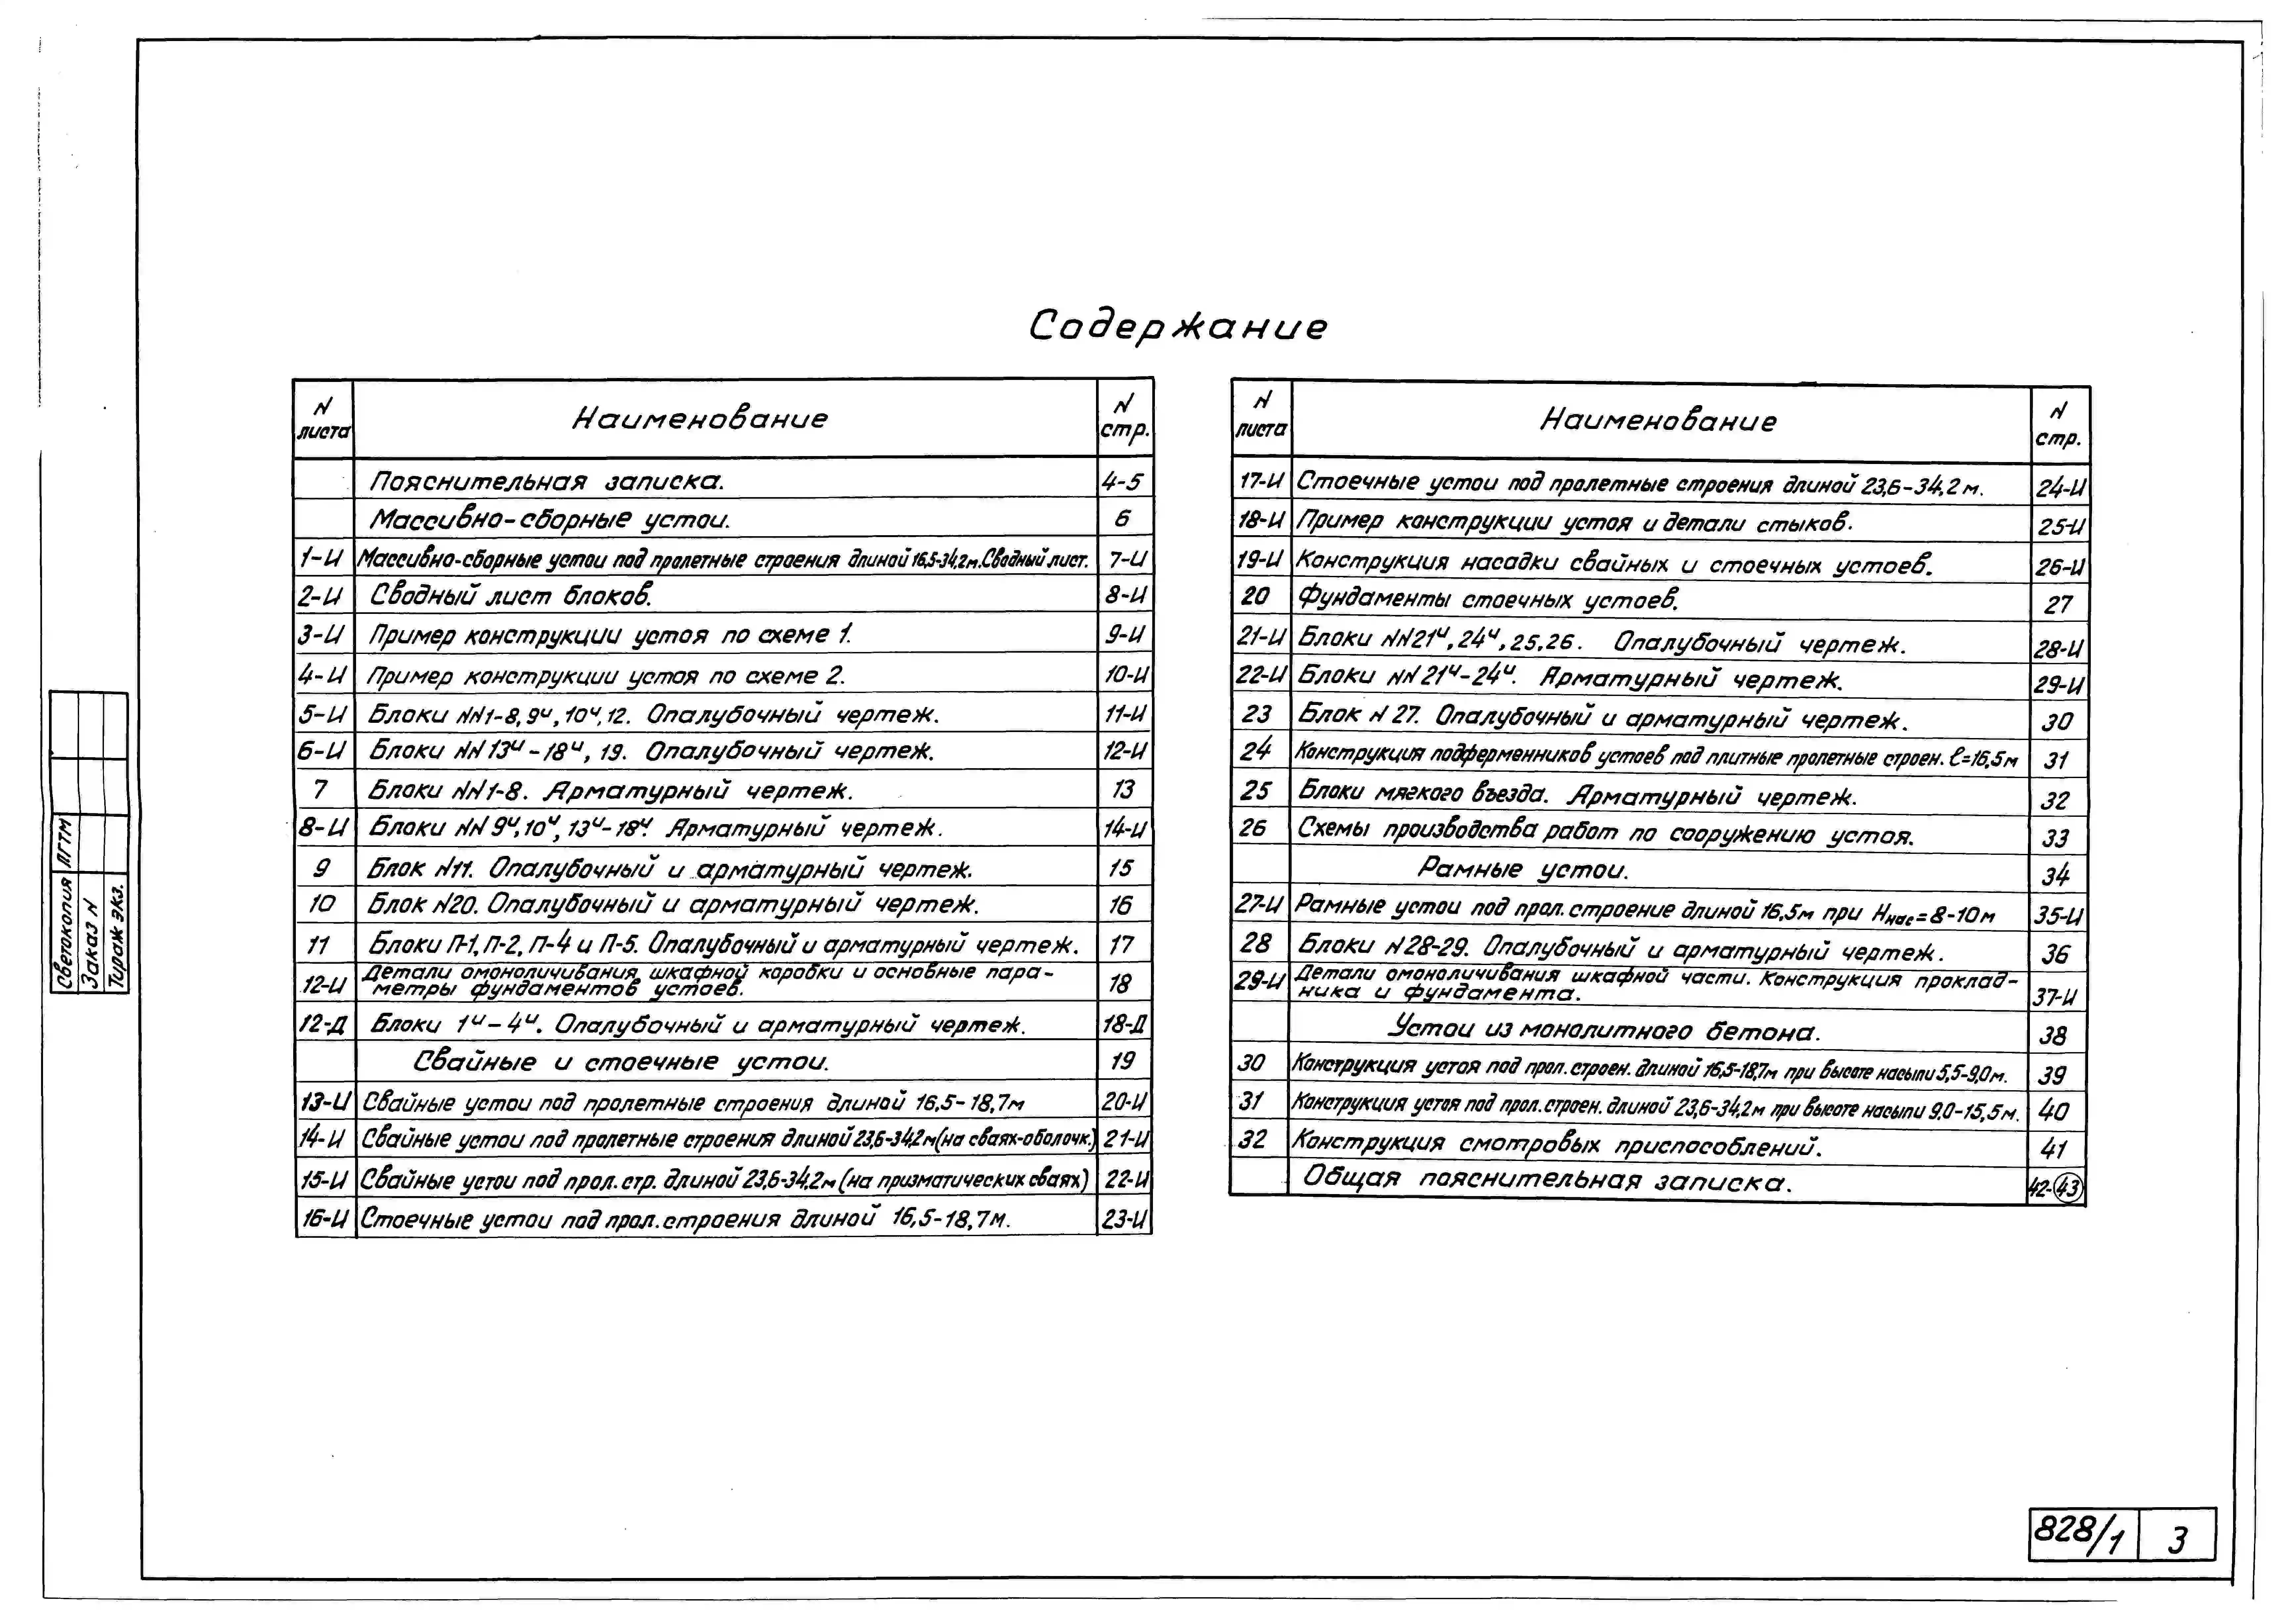 Содержание
N листа Наименование N стр.
Пояснительная записка. 4-5
Массивно-сборные устои. 6
1-И Массивно-сборные устои под пролетные строения длиной 16,5-34,2м. Сводный лист. 7-И
2-И Сводный лист блоков. 8-И
3-И Пример конструкции устоя по схеме 1. 9-И
4-И Пример конструкции устоя по схеме 2. 10-И
5-И Блоки NN1-8, 9и, 10и, 12. Опалубочный чертеж. 11-И
6-И Блоки NN 13и-18и, 19. Опалубочный чертеж. 12-И
7 Блоки NN1-8. Арматурный чертеж. 13
8-И Блоки NN 9и, 10и, 13и-18и. Арматурный чертеж. 14-И
9 Блок N11. Опалубочный и арматурный чертеж. 15
10 Блок N20. Опалубочный и арматурный чертеж. 16
11 Блоки П-1, П-2, П-4 и П-5. Опалубочный и арматурный чертеж. 17
12-И Детали омоноличивания шкафной коробки и основные пара-
метры фундаментов устоев. 18
12-Д Блоки 1и-4и. Опалубочный и арматурный чертеж. 18-Д
Свайные и стоечные устои. 19
13-И Свайные устои под пролетные строения длиной 16,5-18,7м 20-И
14-И Свайные устои под пролетные строения длиной 23,6-34,2м (на сваях-оболочк.) 21-И
15-И Свайные устои под прол. стр. длиной 23,6-34,2м (на призматических сваях) 22-И
16-И Стоечные устои под прол. строения длиной 16,5-18,7м. 23-И
N листа Наименование N стр.
17-И Стоечные устои под пролетные строения длиной 23,6-34,2м. 24-И
18-И Пример конструкции устоя и детали стыков. 25-И
19-И Конструкция насадки свайных и стоечных устоев. 26-И
20 Фундаменты стоечных устоев. 27
21-И Блоки NN21и, 24и, 25, 26. Опалубочный чертеж. 28-И
22-И Блоки NN 21и-24и. Арматурный чертеж. 29-И
23 Блок N 27. Опалубочный и арматурный чертеж. 30
24 Конструкция подферменников устоев под плитные пролетные строен. ℓ=16,5м 31
25 Блоки мягкого въезда. Арматурный чертеж. 32
26 Схемы производства работ по сооружению устоя. 33
Рамные устои. 34
27-И Рамные устои под прол. строение длиной 16,5м при Ннас=8-10м 35-И
28 Блоки N28-29. Опалубочный и арматурный чертеж. 36
29-И Детали омоноличивания шкафной части. Конструкция проклад-
ника и фундамента. 37-И
Устои из монолитного бетона. 38
30 Конструкция устоя под прол. строен. длиной 16,5-18,7м при высоте насыпи 5,5-9,0м. 39
31 Конструкция устоя под прол. строен. длиной 23,6-34,2м при высоте насыпи 9.0-15,5м. 40
32 Конструкция смотровых приспособлений. 41
Общая пояснительная записка. 42-43
Светокопия ЛГТМ
Заказ N
Тираж экз.
828/1 3